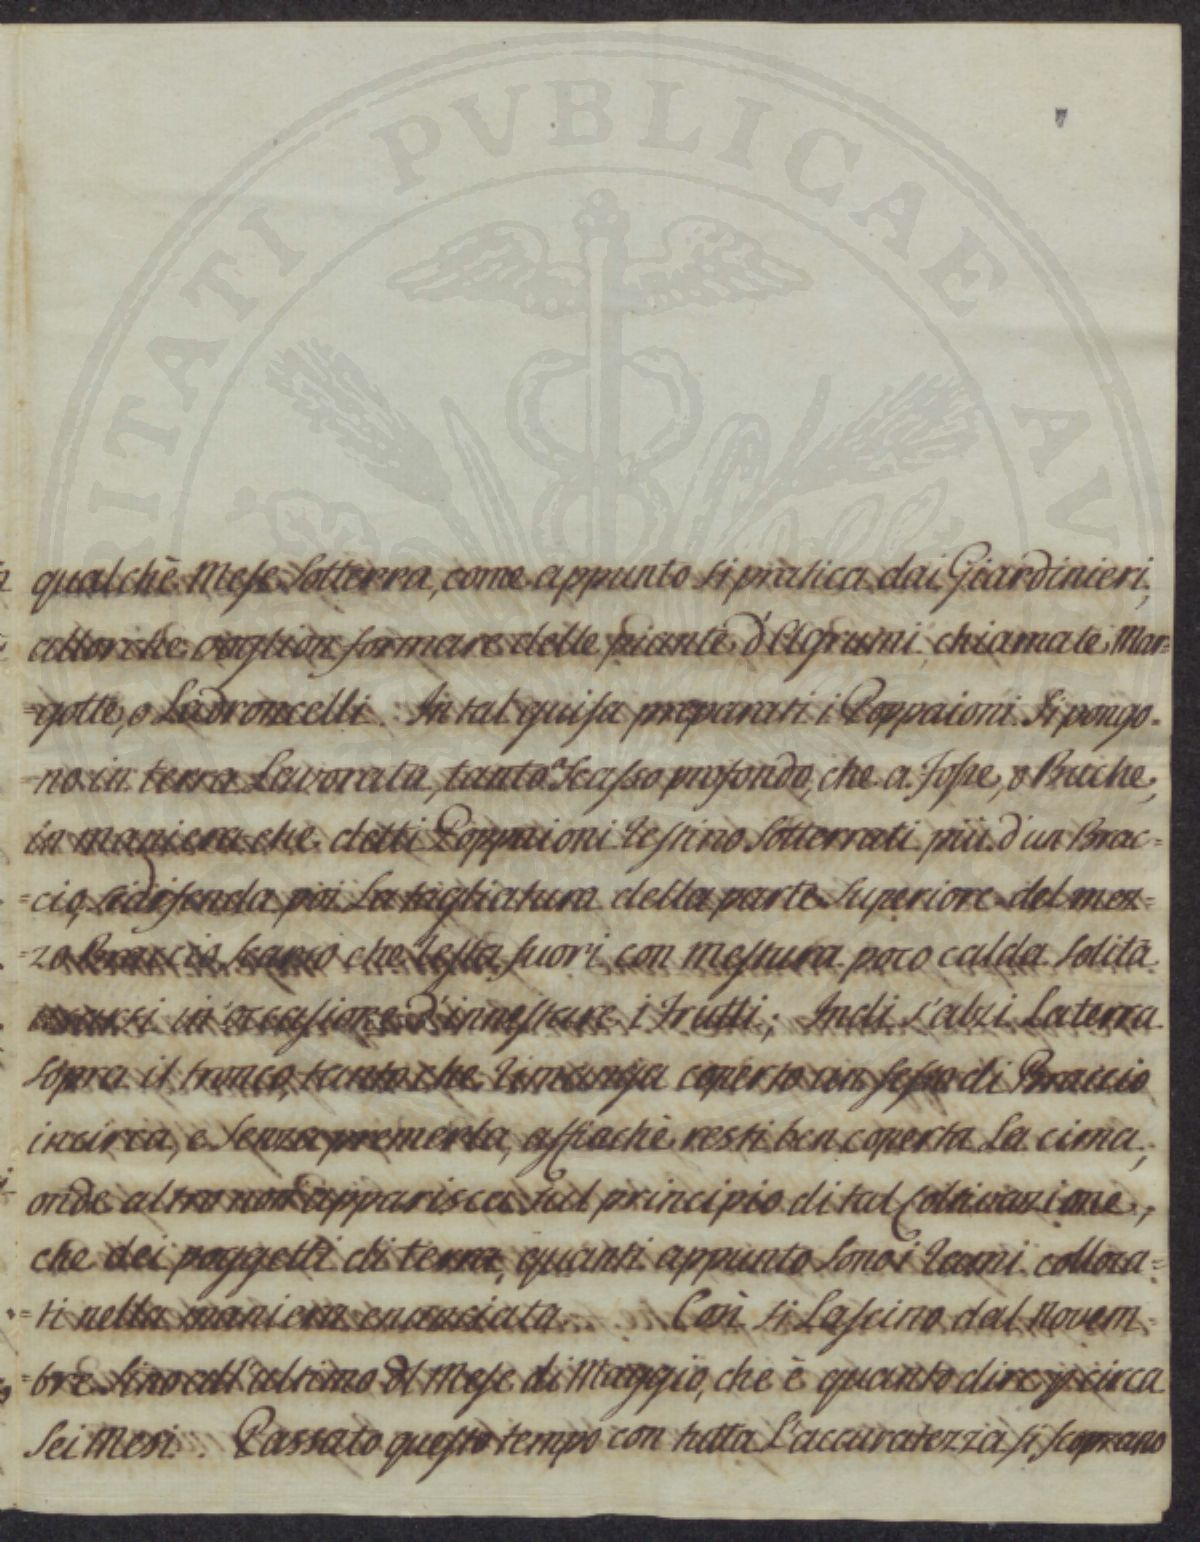 PVBLICAE
RITATI
AV
qualchè Mese Sotterra, come appunto si pratica dai Giardinieri,
allorche voglion formare delle piante d'Agrumi chiamate Mar=
=gotte, o Ladroncelli. In tal guisa preparati i Poppaioni Si pongo=
=no in terra Lavorata, tanto Scasso profondo, che a Fosse, o Buche,
in maniera che detti Poppaioni restino Sotterrati più d'un Brac=
=cio, si difenda poi La tagliatura della parte Superiore del mez=
=zo Braccio scarso che resta fuori con mestura poco calda Solita
usarsi in occasione d'innestare i Frutti; Indi s'alzi La terra
Sopra il tronco, tanto che rimanga coperto un sesto di Braccio
incirca, e Senza premerla, affinchè resti ben coperta La cima,
onde altro non apparisca sul principio di tal Coltivazione,
che dei poggetti di terra, quanti appunto Sono i rami colloca=
=ti nella maniera enunciata. Così si Lascino dal Novem=
=bre Sino all'ultimo del Mese di Maggio, che è quanto dire p circa
Sei Mesi. Passato questo tempo con tutta L'accuratezza si scoprano